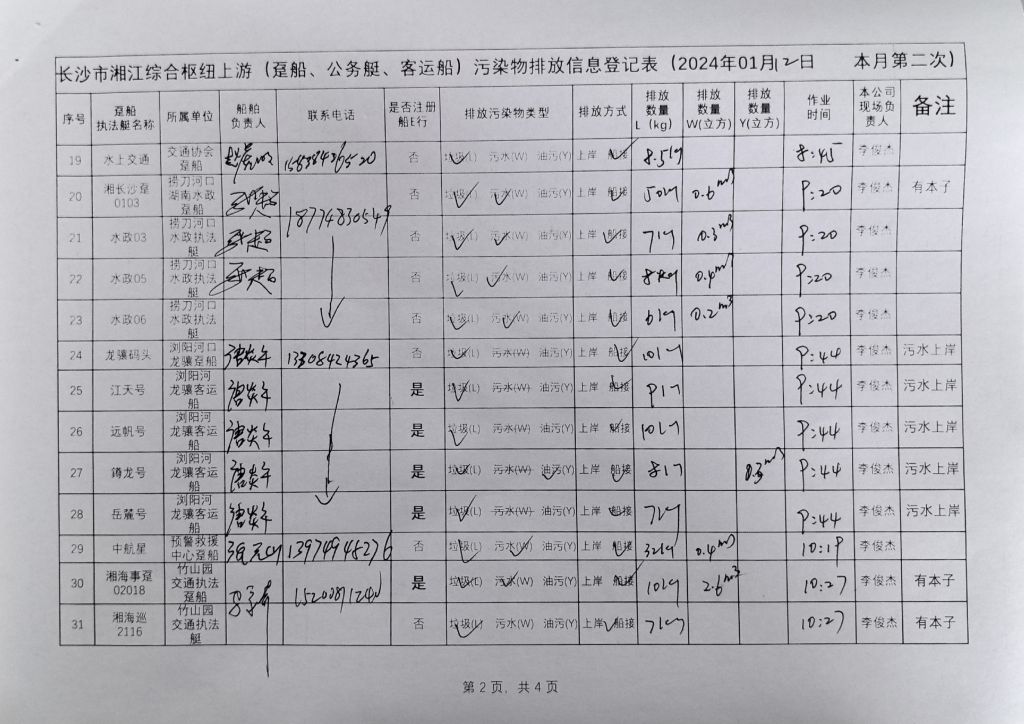 长沙市湘江综合枢纽上游（趸船、公务艇、客运船）污染物排放信息登记表（2024年01月12日 本月第二次）
序号 趸船执法艇名称 所属单位 船舶负责人 联系电话 是否注册船E行 排放污染物类型 排放方式 排放数量L（kg） 排放数量W(立方) 排放数量Y(立方) 作业时间 本公司现场负责人 备注
19 水上交通 交通协会趸船 否 垃圾(L) 污水(W) 油污(Y) 上岸 船接 8.5kg 8:45 李俊杰
20 湘长沙趸0103 捞刀河口湖南水政趸船 18774830549 否 垃圾(L) 污水(W) 油污(Y) 上岸 船接 50kg 0.6m³ 9:20 李俊杰 有本子
21 水政03 捞刀河口水政执法艇 否 垃圾(L) 污水(W) 油污(Y) 上岸 船接 7kg 0.3m³ 9:20 李俊杰
22 水政05 捞刀河口水政执法艇 否 垃圾(L) 污水(W) 油污(Y) 上岸 船接 8kg 0.4m³ 9:20 李俊杰
23 水政06 捞刀河口水政执法艇 否 垃圾(L) 污水(W) 油污(Y) 上岸 船接 6kg 0.2m³ 9:20 李俊杰
24 龙骧码头 浏阳河口龙骧趸船 唐炎午 13308424365 否 垃圾(L) 污水(W) 油污(Y) 上岸 船接 10kg 9:44 李俊杰 污水上岸
25 江天号 浏阳河龙骧客运船 唐炎午 是 垃圾(L) 污水(W) 油污(Y) 上岸 船接 9kg 9:44 李俊杰 污水上岸
26 远帆号 浏阳河龙骧客运船 唐炎午 是 垃圾(L) 污水(W) 油污(Y) 上岸 船接 10kg 9:44 李俊杰 污水上岸
27 鐏龙号 浏阳河龙骧客运船 唐炎午 是 垃圾(L) 污水(W) 油污(Y) 上岸 船接 8kg 0.3m³ 9:44 李俊杰 污水上岸
28 岳麓号 浏阳河龙骧客运船 唐炎午 是 垃圾(L) 污水(W) 油污(Y) 上岸 船接 7kg 9:44 李俊杰 污水上岸
29 中航星 预警救援中心趸船 13974948276 否 垃圾(L) 污水(W) 油污(Y) 上岸 船接 32kg 0.4m³ 10:19 李俊杰
30 湘海事趸02018 竹山园交通执法趸船 是 垃圾(L) 污水(W) 油污(Y) 上岸 船接 10kg 2.6m³ 10:27 李俊杰 有本子
31 湘海巡2116 竹山园交通执法艇 否 垃圾(L) 污水(W) 油污(Y) 上岸 船接 7kg 10:27 李俊杰 有本子
第 2 页，共 4 页